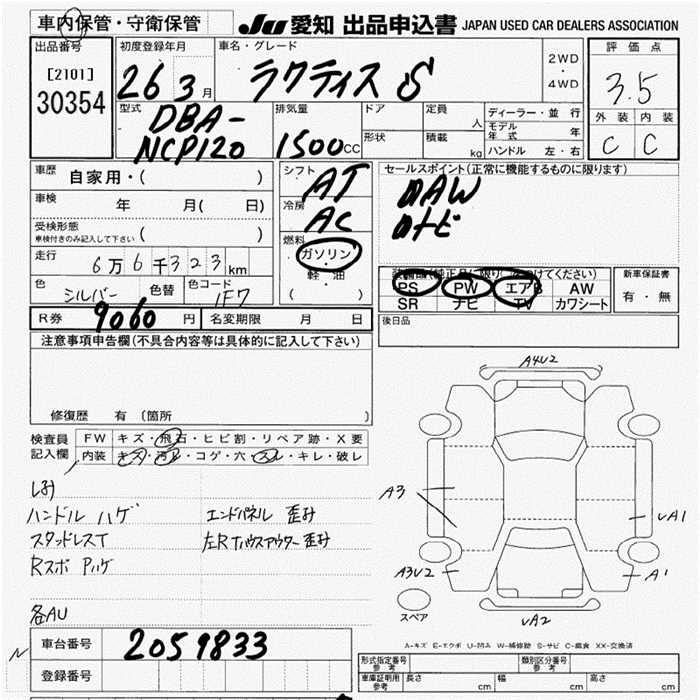 車内保管・守衛保管
JU 愛知 出品申込書 JAPAN USED CAR DEALERS ASSOCIATION
出品番号
[2101]
30354
初度登録年月
26 3月
車名・グレード
ラクティス S
2WD
・
4WD
評価点
3.5
外装 内装
C C
型式
DBA-
NCP120
排気量
1500cc
ドア
形状
定員
人
積載
kg
ディーラー・並行
モデル年式 年
ハンドル 左・右
車歴 自家用・( )
車検 年 月( 日)
受検形態
車検付きのみ記入して下さい ( )
走行 6万6千323km
色 シルバー 色替 色コード 1F7
シフト AT
冷房 AC
燃料
ガソリン
・
軽・油
( )
セールスポイント(正常に機能するものに限ります)
純AW
純ナビ
PS PW エアB AW
SR ナビ TV カワシート
新車保証書
有・無
後日品
R券 9060円 名変期限 月 日
注意事項申告欄(不具合内容等は具体的に記入して下さい)
修復歴 有 (箇所 )
検査員
記入欄
FW キズ・飛石・ヒビ割・リペア跡・X要
内装 キズ・汚レ・コゲ・穴・スレ・キレ・破レ
ハンドル ハゲ
スタッドレスT
エンドパネル 歪み
左Rタハウスアウター 歪み
各AU
A4U2
A3
A3U2
A1
A1
A2
スペア
A-キズ E-エクボ U-凹み W-補修跡 S-サビ C-腐食 XX-交換済
車台番号 2059833
登録番号
型式指定番号
参考
類別区分番号
参考
車庫証明用
参考
長さ cm 幅 cm 高さ cm